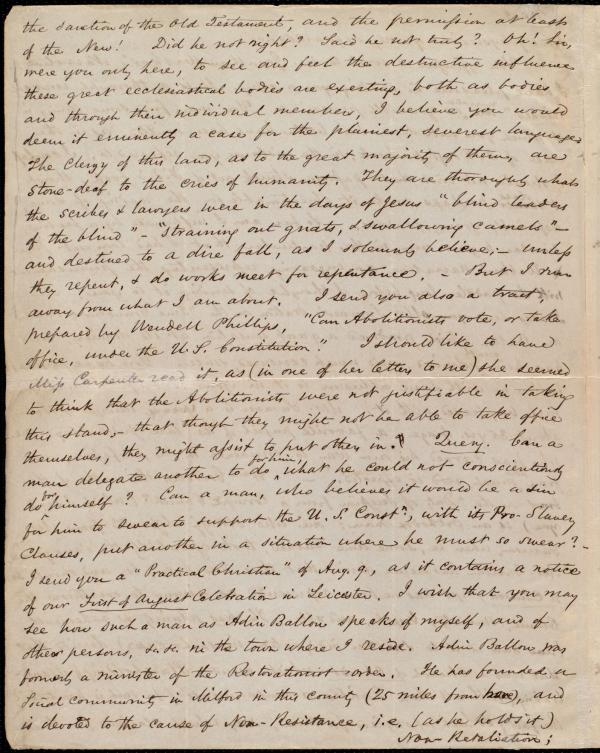 the sanction of the Old Testament, and the permission at least
of the New! Did he not right? Said he not truly? Oh! Sir,
were you only here, to see and feel the destructive influence
these great ecclesiastical bodies are exerting, both as bodies
and through their individual members, I believe you would
deem it eminently a case for the plainest, severest language.
The Clergy of this land, as to the great majority of them, are
stone-deaf to the cries of humanity. They are thoroughly what
the scribes & lawyers were in the days of Jesus "blind leaders
of the blind" - "straining out gnats, & swallowing camels" -
and destined to a dire fall, as I solemnly believe; - unless
they repent, & do works meet for repentance. - But I run
away from what I am about. I send you also a tract,
prepared by Wendell Phillips, "Can Abolitionists vote, or take
office, under the U.S. Constitution." I should like to have
Miss Carpenter read it, as (in one of her letters to me) she seemed
to think that the Abolitionists were not justifiable in taking
this stand, - that though they might not be able to take office
themselves, they might assist to put others in. Query. Can a
man delegate another to do for him, what he could not conscientiously
do for himself? Can a man, who believes it would be a sin
for him to swear to support the U.S. Constn, with its Pro-Slavery
Clauses, put another in a situation where he must so swear? -
I send you a "Practical Christian" of Aug. 9, as it contains a notice
of our First of August Celebration in Leicester. I wish that you may
see how such a man as Adin Ballou speaks of myself, and of
other persons, &c. &c. in the town where I reside. Adin Ballou was
formerly a minister of the Restorationist order. He has founded a
Social community in Milford in this county (25 miles from here), and
is devoted to the cause of Non-Resistance, i.e. (as he holds it)
Non-Retaliation;